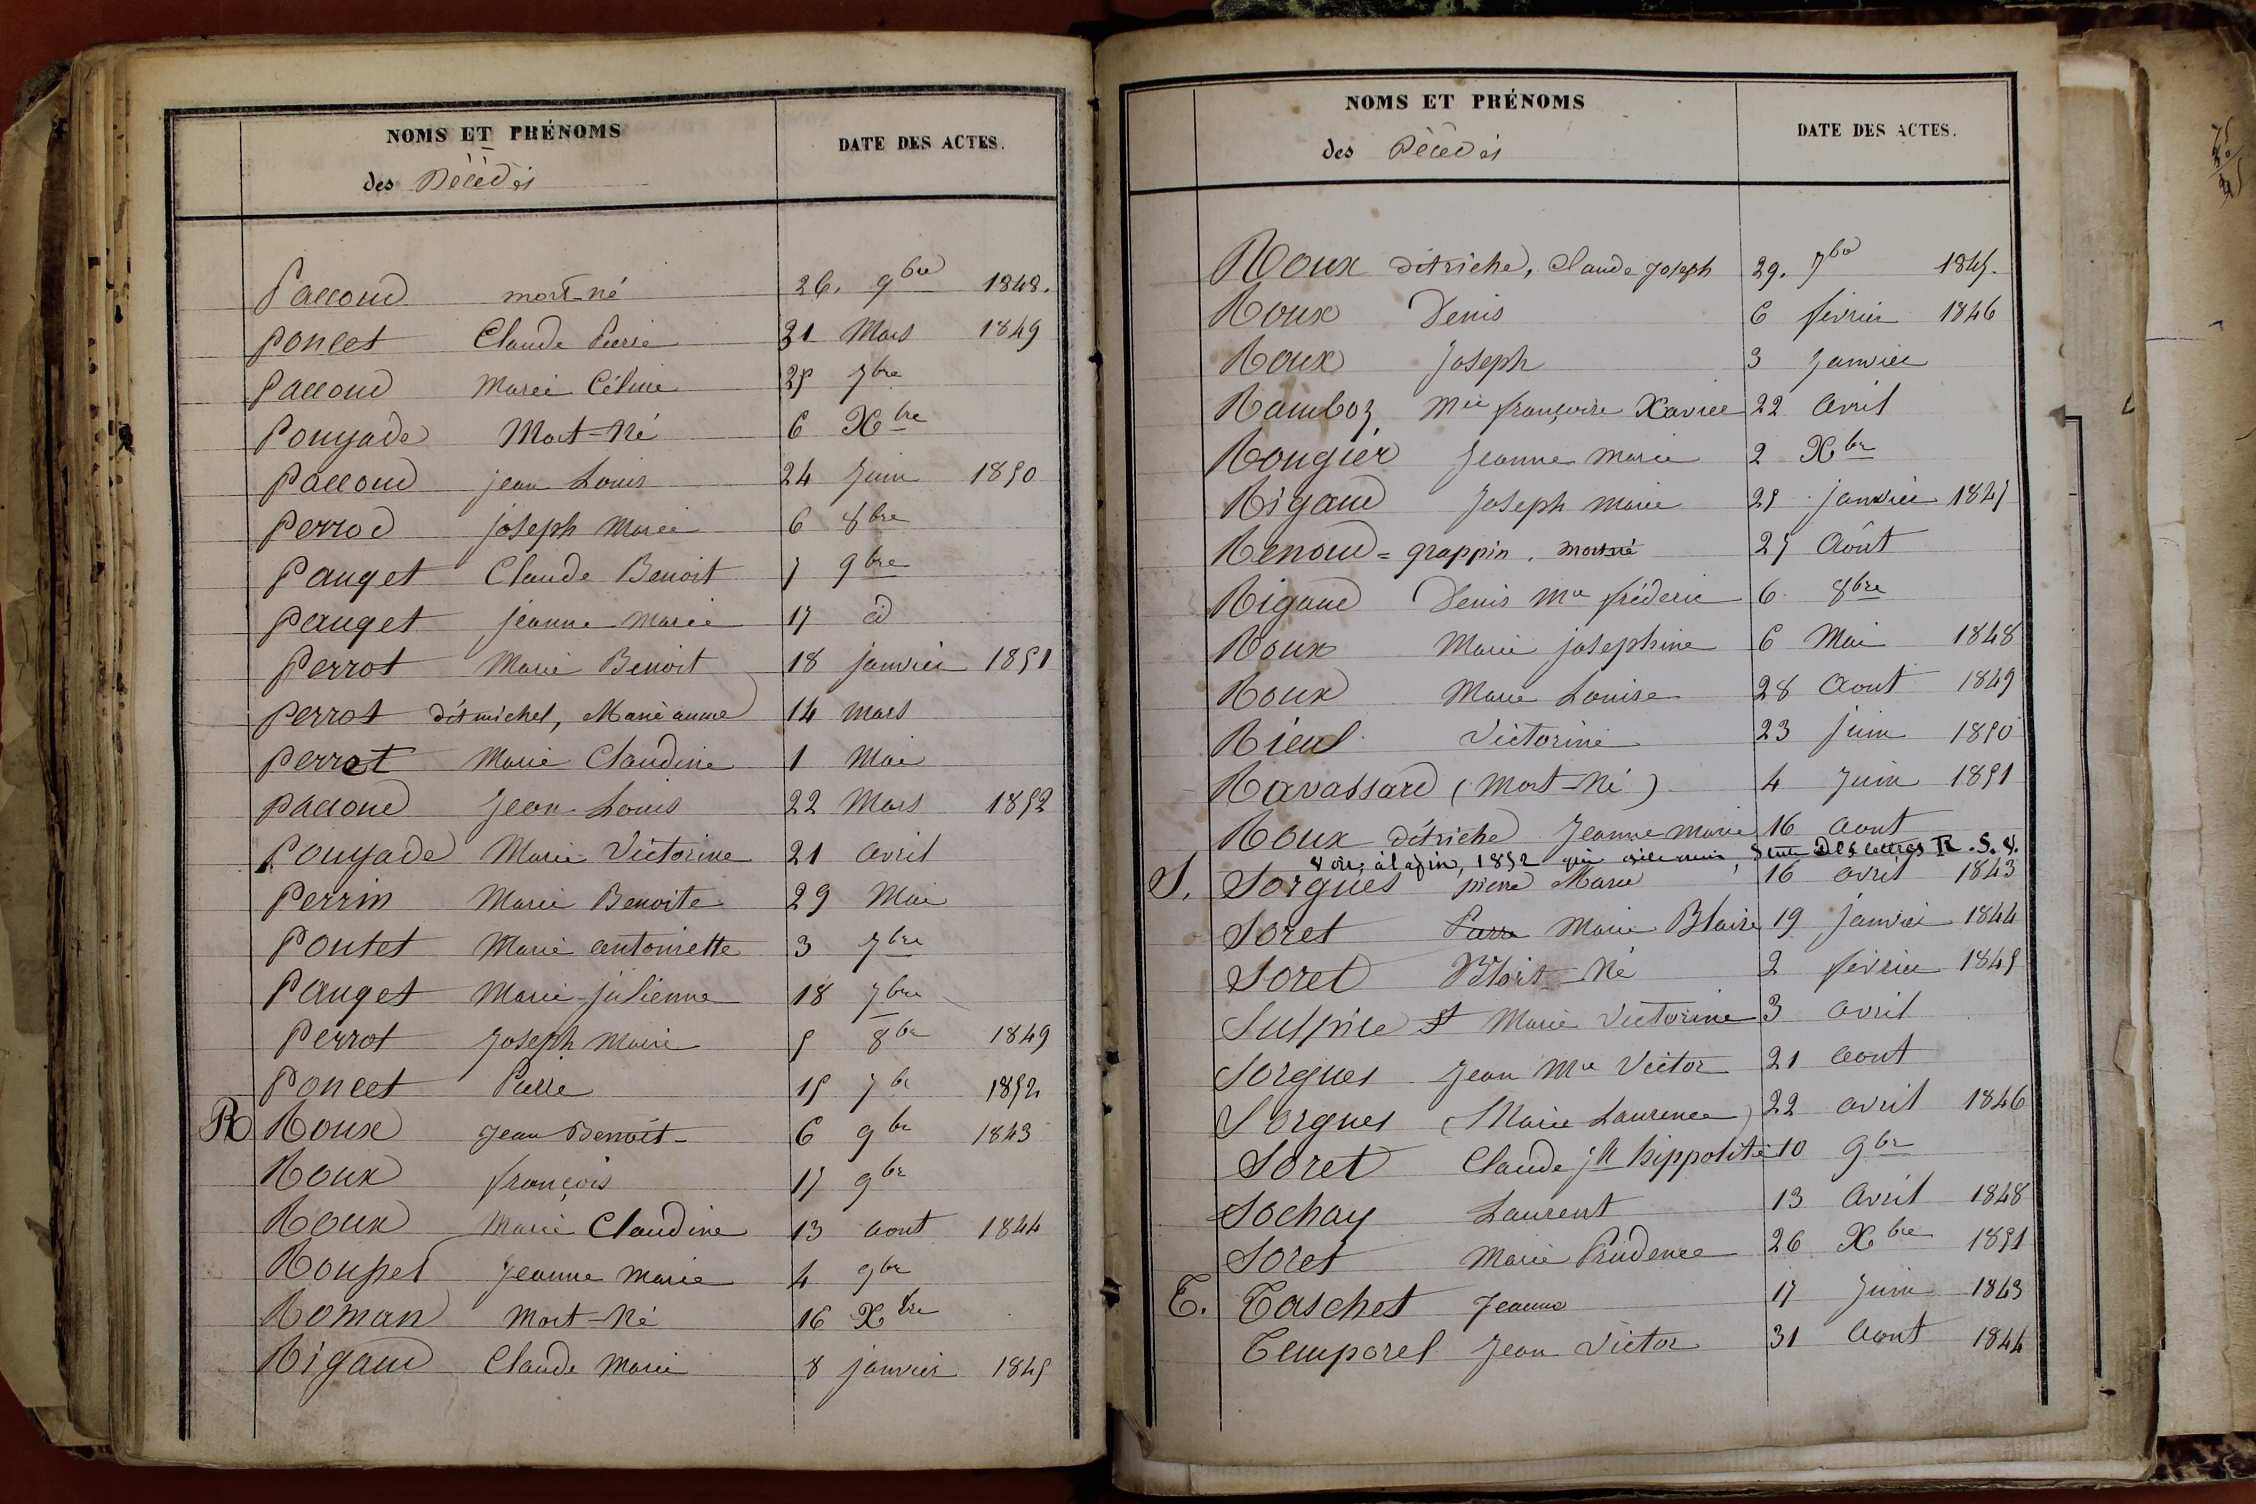 NOMS ET PRÉNOMS
DATE DES ACTES.
des Décédés
Paccoud mort-né 26. 9bre 1848.
Poncet Claude Pierre 21 Mars 1849
Paccoud Marie Céline 25 7bre
Pouyade Mort-Né 6 Xbre
Paccoud jean Louis 24 Juin 1850
Perrod joseph Marie 6 8bre
Pauget Claude Benoit 7 9bre
Pauget jeanne Marie 17 id
Perrot Marie Benoit 18 janvier 1851
Perrot dit michel, Marie anne 14 Mars
Perrot Marie Claudine 1 Mai
Paccoud Jean Louis 22 Mars 1852
Pouyade Marie Victorine 21 avril
Perrin Marie Benoite 29 Mai
Pontet Marie antoinette 3 7bre
Pauget Marie julienne 18 7bre
Perrot Joseph Marie 5 8bre 1849
Poncet Pierre 15 7bre 1852
R Roux Jean Benoit 6 9bre 1843
Roux françois 17 9bre
Roux Marie Claudine 13 aout 1844
Rousset Jeanne Marie 4 9bre
Roman Mort-Né 16 Xbre
Rigaud Claude Marie 8 janvier 1845
NOMS ET PRÉNOMS
DATE DES ACTES.
des Décédés
Roux dit riche, Claude Joseph 29. 7bre 1845.
Roux Denis 6 février 1846
Roux Joseph 3 Janvier
Ramboz Mie françoise Xavier 22 Avril
Rougier Jeanne Marie 2 Xbre
Rigaud Joseph Marie 25 janvier 1847
Renoud = grappin. mort né 27 Août
Rigaud Denis Mie fréderic 6 8bre
Roux Marie josephine 6 Mai 1848
Roux Marie Louise 28 Aout 1849
Rieul Victorine 23 juin 1850
Ravassard (Mort-Né) 4 Juin 1851
Roux dit riche Jeanne Marie 16 Aout
Voir à la fin, 1852 Des lettres R. S. V.
S. Sorgues pierre Marie 16 avril 1843
Soret Marie Blaise 19 Janvier 1844
Soret Mort-Né 2 février 1845
Sulpice St Marie Victorine 3 avril
Sorgues Jean Mie Victor 21 aout
Sorgues (Marie Laurence) 22 avril 1846
Soret Claude jh hippolite 10 9bre
Sochay Laurent 13 Avril 1848
Soret Marie Prudence 26 Xbre 1851
T. Taschet Jeanne 17 Juin 1843
Temporel Jean Victor 31 Aout 1844